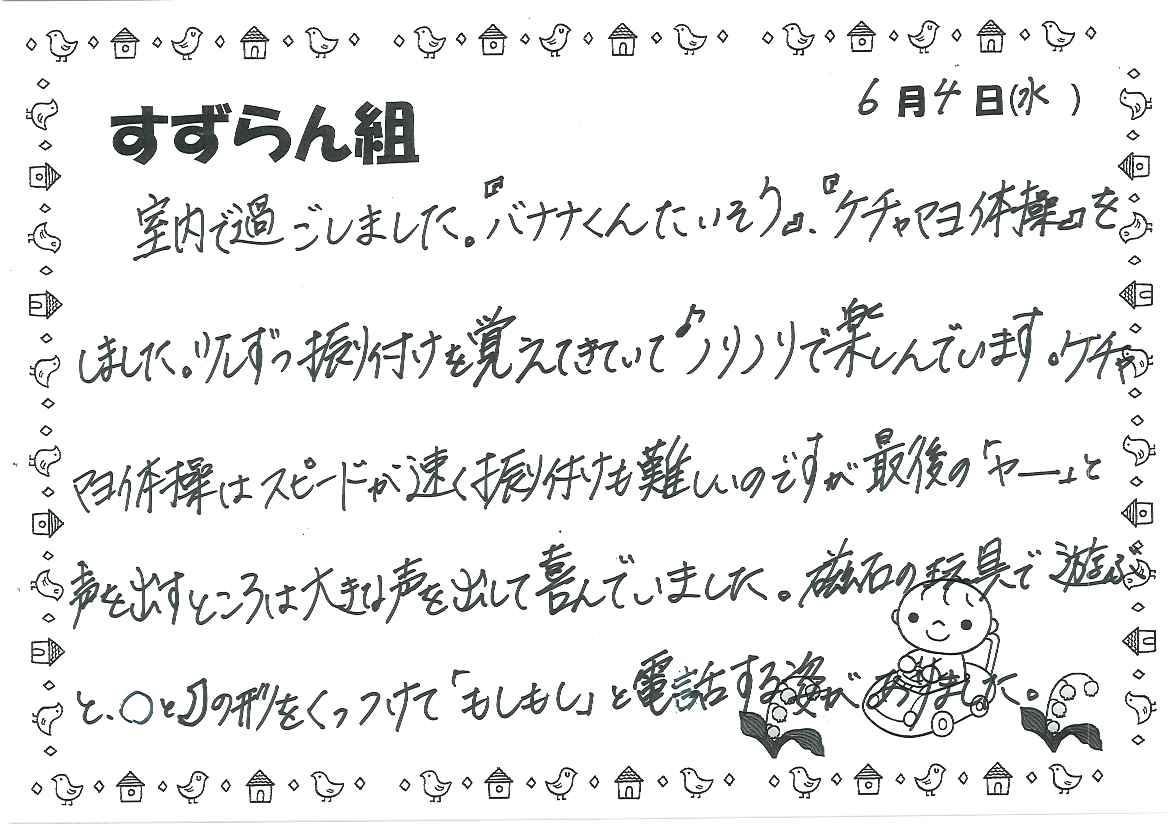 6月4日(水)
すずらん組
室内で過ごしました。『バナナくんたいそう』、『ケチャマヨ体操』を
しました。少しずつ振り付けを覚えてきていて♪ノリノリで楽しんでいます。ケチャ
マヨ体操はスピードが速く振り付けも難しいのですが最後の「ヤー」と
声を出すところは大きな声を出して喜んでいました。磁石の玩具で遊ぶ
と、○と の形をくっつけて「もしもし」と電話する姿がありました。